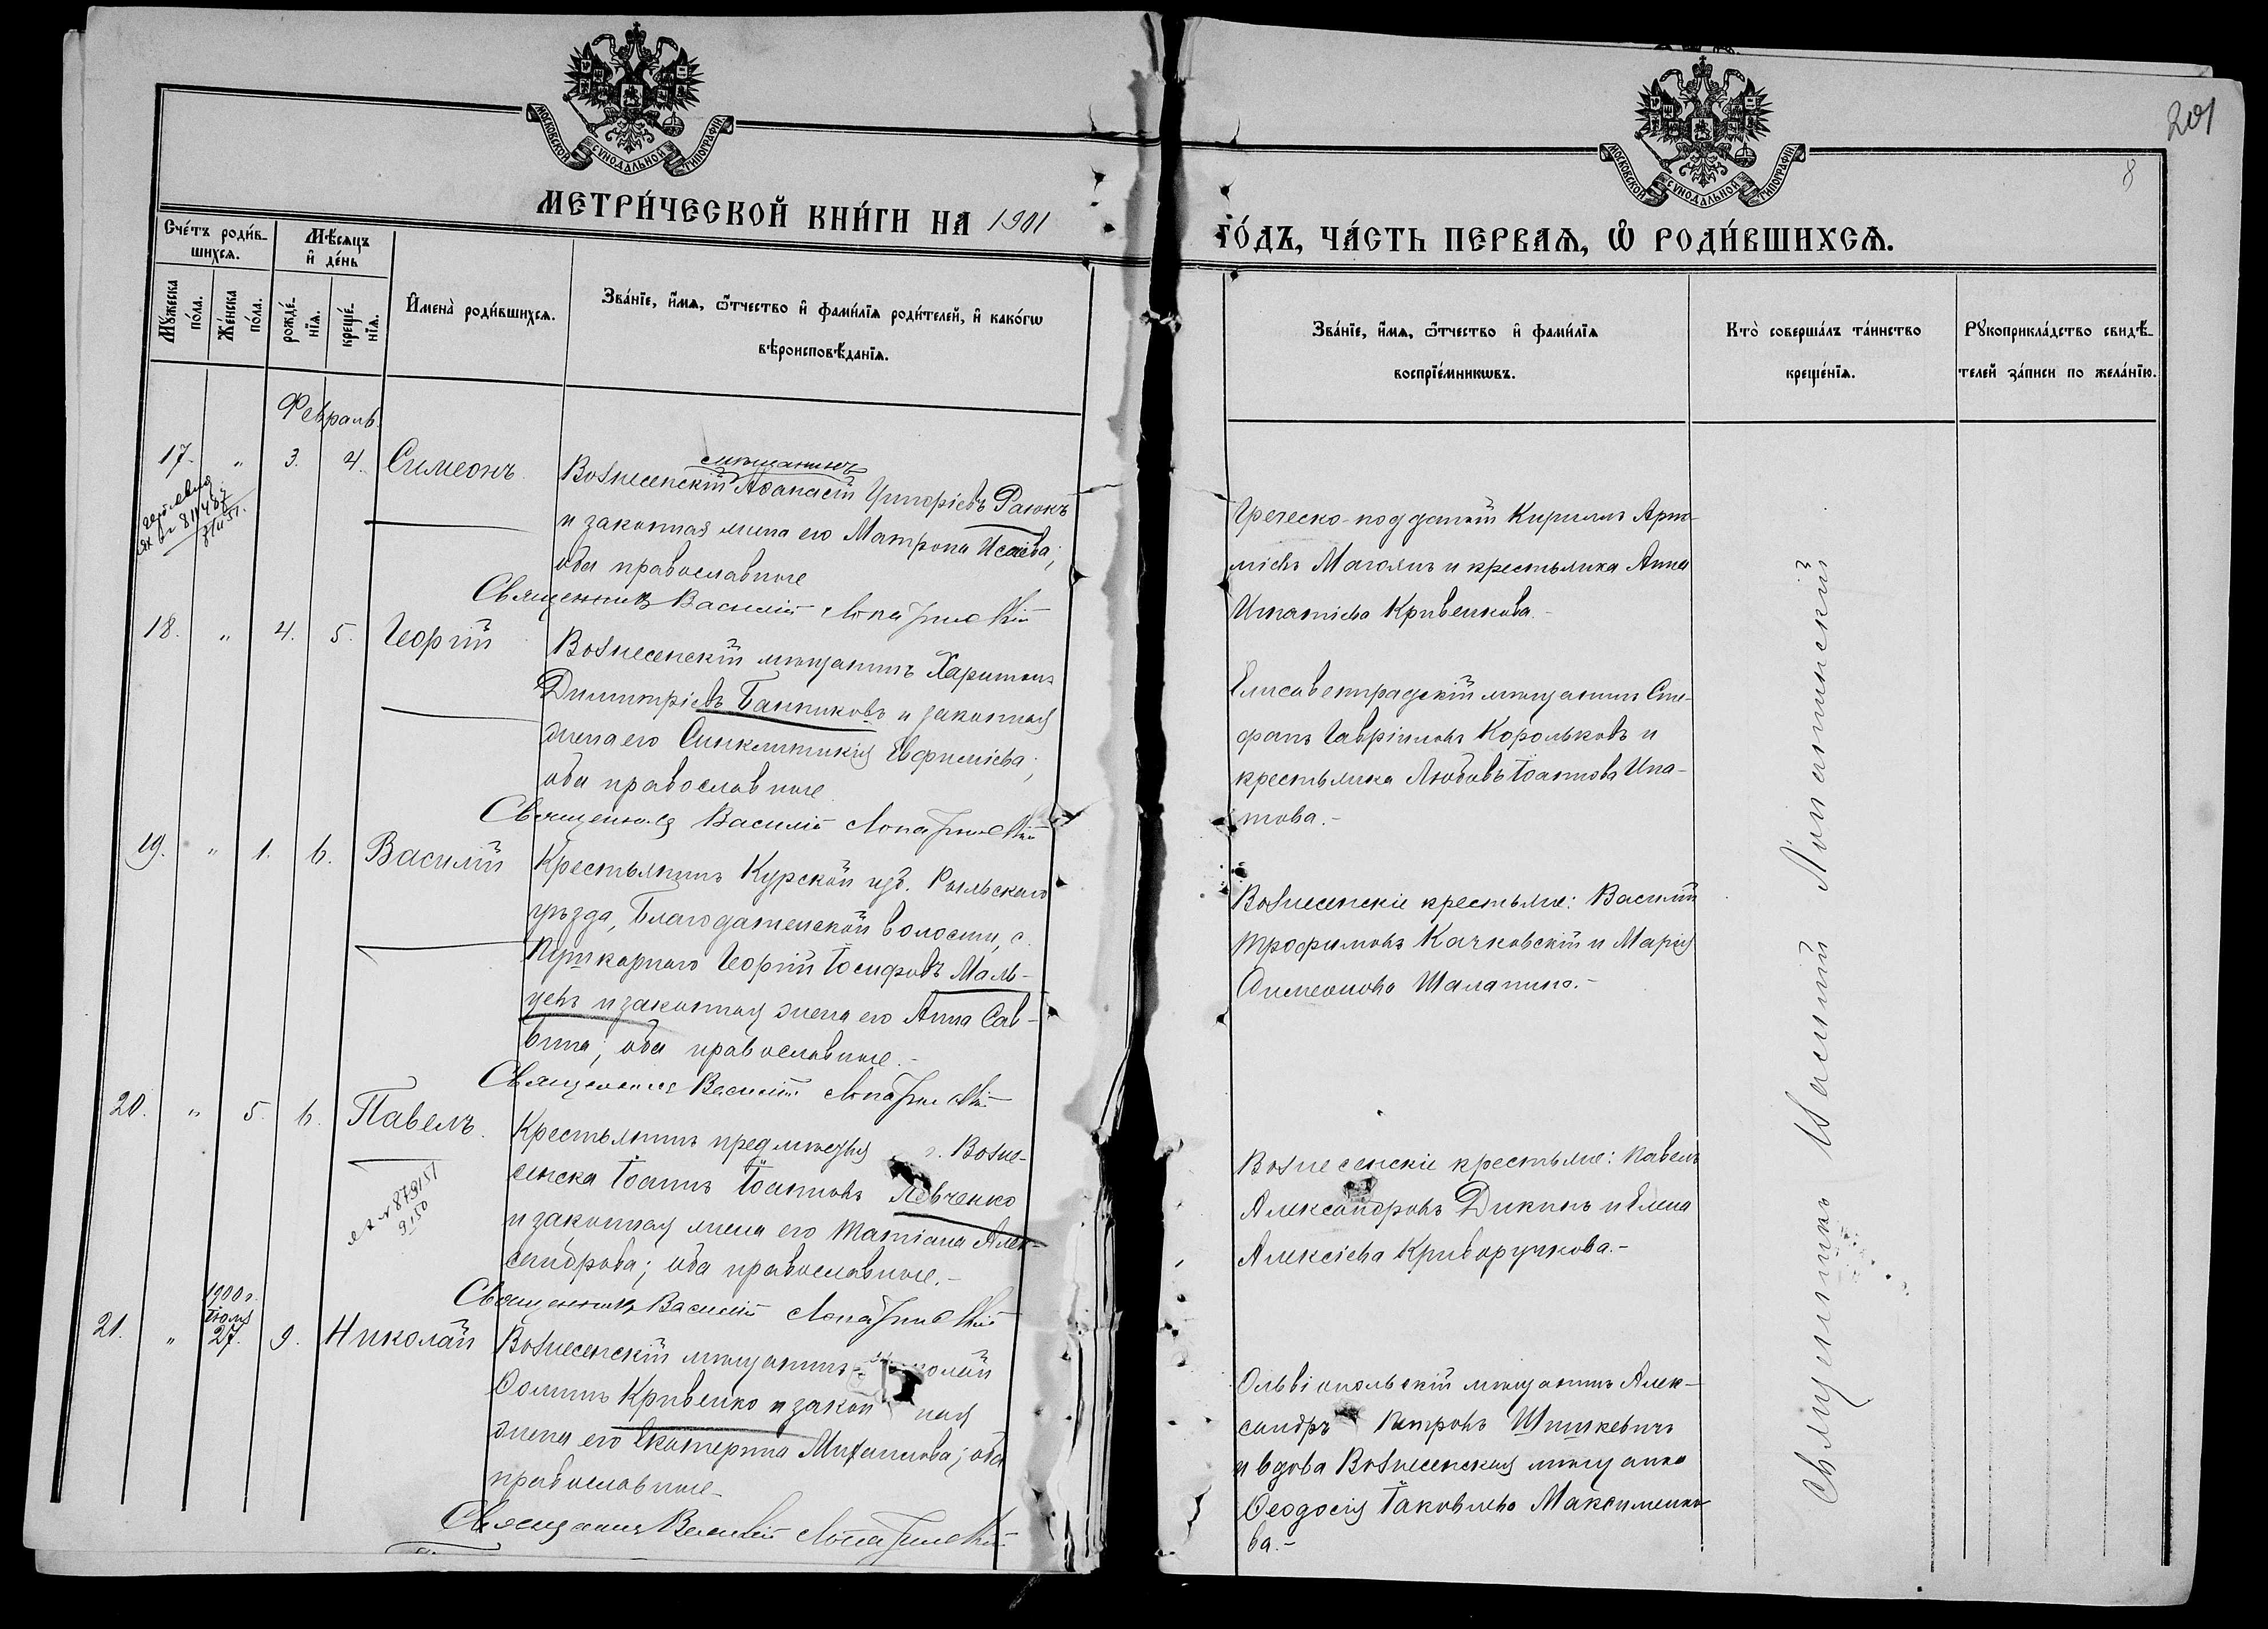 201
8
МОСКОВСКОЙ СѴНОДАЛЬНОЙ ТИПОГРАФІИ
МОСКОВСКОЙ СѴНОДАЛЬНОЙ ТИПОГРАФІИ
МЕТРИ́ЧЕСКОЙ КНИ́ГИ НА 1901
ГО́ДЪ, ЧА́СТЬ ПЕРВАѦ, Ѡ РОДИ́ВШИХСѦ.
Сче́тъ роди́в-
шихсѧ.
Мꙋжеска
по́ла.
Же́нска
по́ла.
Мѣ́сѧцъ
и де́нь
рожде́-
нїѧ.
креще́-
нїѧ.
Имена̀ роди́вшихсѧ.
Зва́нїе, и́мѧ, ѻ́тчество и фами́лїѧ роди́телей, и како́гѡ
вѣроисповѣ́данїѧ.
Зва́нїе, и́мѧ, ѻ́тчество и фами́лїѧ
воспрїе́мникѡвъ.
Кто̀ соверша́лъ та́инство
креще́нїѧ.
Рꙋкоприкла́дство свидѣ́-
телей за́писи по жела́нїю.
Февраль.
17. " 3. 4. Симеонъ.
мѣщанинъ
Вознесенскій Аѳанасій Григоріевъ Раюкъ
и законная жена его Матрона Исаева;
оба православные
Священникъ Василій Лопатинскій
Греческо-подданный Кириллъ Арте-
міевъ Магоянъ и крестьянка Анна
Игнатіева Кривенкова.-
18. " 4. 5. Георгій
Вознесенскій мѣщанинъ Харитонъ
Димитріевъ Банниковъ и законная
жена его Синклитикія Евфиміева;
оба православные
Священникъ Василій Лопатинскій
Елисаветградскій мѣщанинъ Сте-
фанъ Гавріиловъ Корольковъ и
крестьянка Любовь Іоаннова Ипа-
това.-
19. " 1. 6. Василій
Крестьянинъ Курской губ. Рыльскаго
уѣзда, Благодатенской волости, с.
Пушкарнаго Георгій Іосифовъ Маль-
цевъ и законная жена его Анна Сав-
вина; оба православные.-
Священникъ Василій Лопатинскій
Вознесенскіе крестьяне: Василій
Трофимовъ Качковскій и Марія
Симеонова Шалапина.-
20. " 5. 6. Павелъ.
Крестьянинъ предмѣстья г. Возне-
сенска Іоаннъ Іоанновъ Левченко
и законная жена его Татіана Алек-
сандрова; оба православные.-
Священникъ Василій Лопатинскій
Вознесенскіе крестьяне: Павелъ
Александровъ Дикинъ и Елена
Алексіева Криворучкова.-
1900 г.
Іюля
21. " 27. 9. Николай
Вознесенскій мѣщанинъ Николай
Ѳоминъ Кривенко и законная
жена его Екатерина Михаилова; оба
православные.-
Священникъ Василій Лопатинскій
Ольвіопольскій мѣщанинъ Алек-
сандръ Петровъ Шишкевичъ
и вдова Вознесенская мѣщанка
Ѳеодосія Іаковлева Максименко-
ва.-
Священникъ Василій Лопатинскій